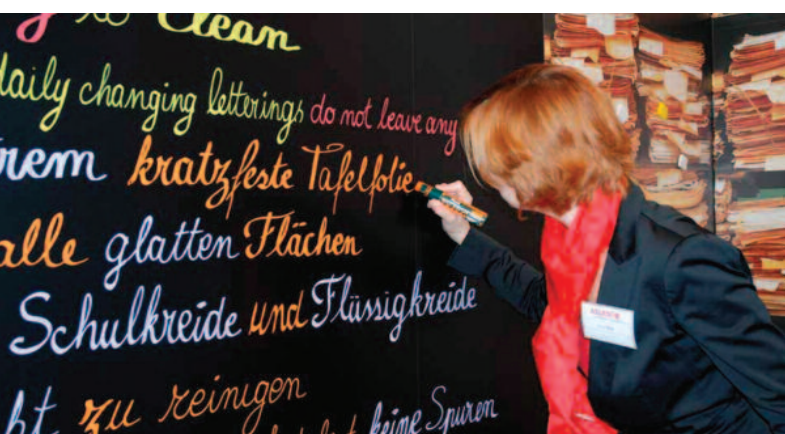 to Clean
daily changing letterings do not leave any
kratzfeste Tafelfolie
alle glatten Flächen
Schulkreide und Flüssigkreide
zu reinigen
keine Spuren